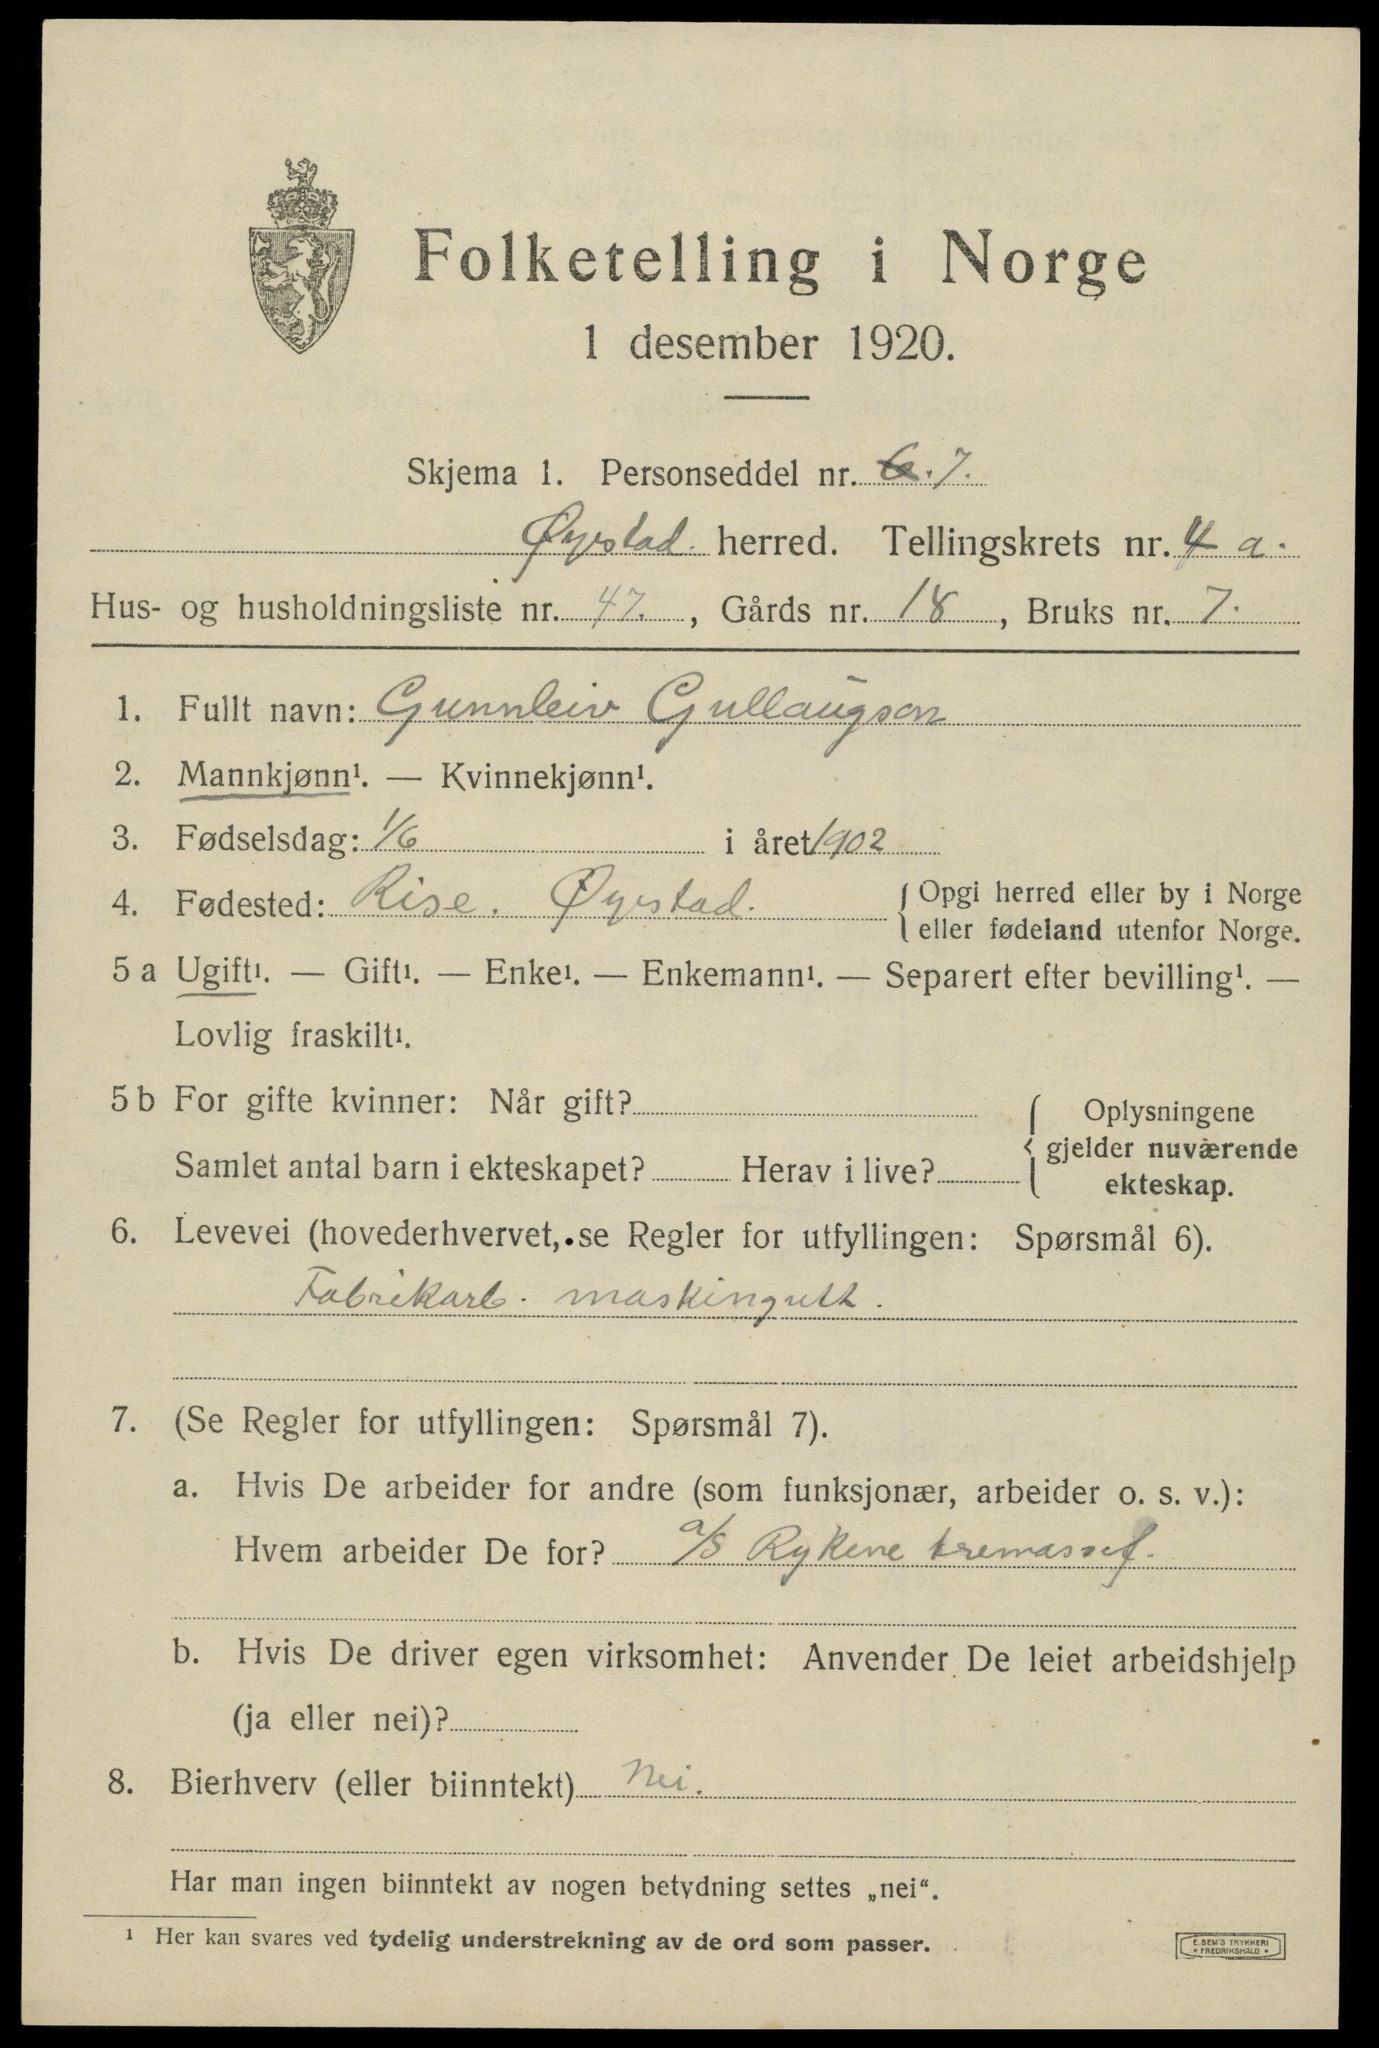 Folketelling i Norge
1 desember 1920.
Skjema 1. Personseddel nr. 6. 7.
Øyestad. herred. Tellingskrets nr. 4 a.
Hus- og husholdningsliste nr. 47. , Gårds nr. 18 , Bruks nr. 7.
1. Fullt navn: Gunnleiv Gullaugson
2. Mannkjønn¹. — Kvinnekjønn¹.
3. Fødselsdag: 1/6 i året 1902
4. Fødested: Rise. Øyestad. { Opgi herred eller by i Norge
eller fødeland utenfor Norge.
5 a Ugift¹. — Gift¹. — Enke¹. — Enkemann¹. — Separert efter bevilling¹. —
Lovlig fraskilt¹.
5 b For gifte kvinner: Når gift?
Samlet antal barn i ekteskapet? Herav i live?
Oplysningene
gjelder nuværende
ekteskap.
6. Levevei (hovederhvervet, se Regler for utfyllingen: Spørsmål 6).
Fabrikarb. maskingutt.
7. (Se Regler for utfyllingen: Spørsmål 7).
a. Hvis De arbeider for andre (som funksjonær, arbeider o. s. v.):
Hvem arbeider De for? a/s Rykene tremassef.
b. Hvis De driver egen virksomhet: Anvender De leiet arbeidshjelp
(ja eller nei)?
8. Bierhverv (eller biinntekt) Nei.
Har man ingen biinntekt av nogen betydning settes „nei“.
¹ Her kan svares ved tydelig understrekning av de ord som passer.
E. SEM'S TRYKKERI
• FREDRIKSHALD •